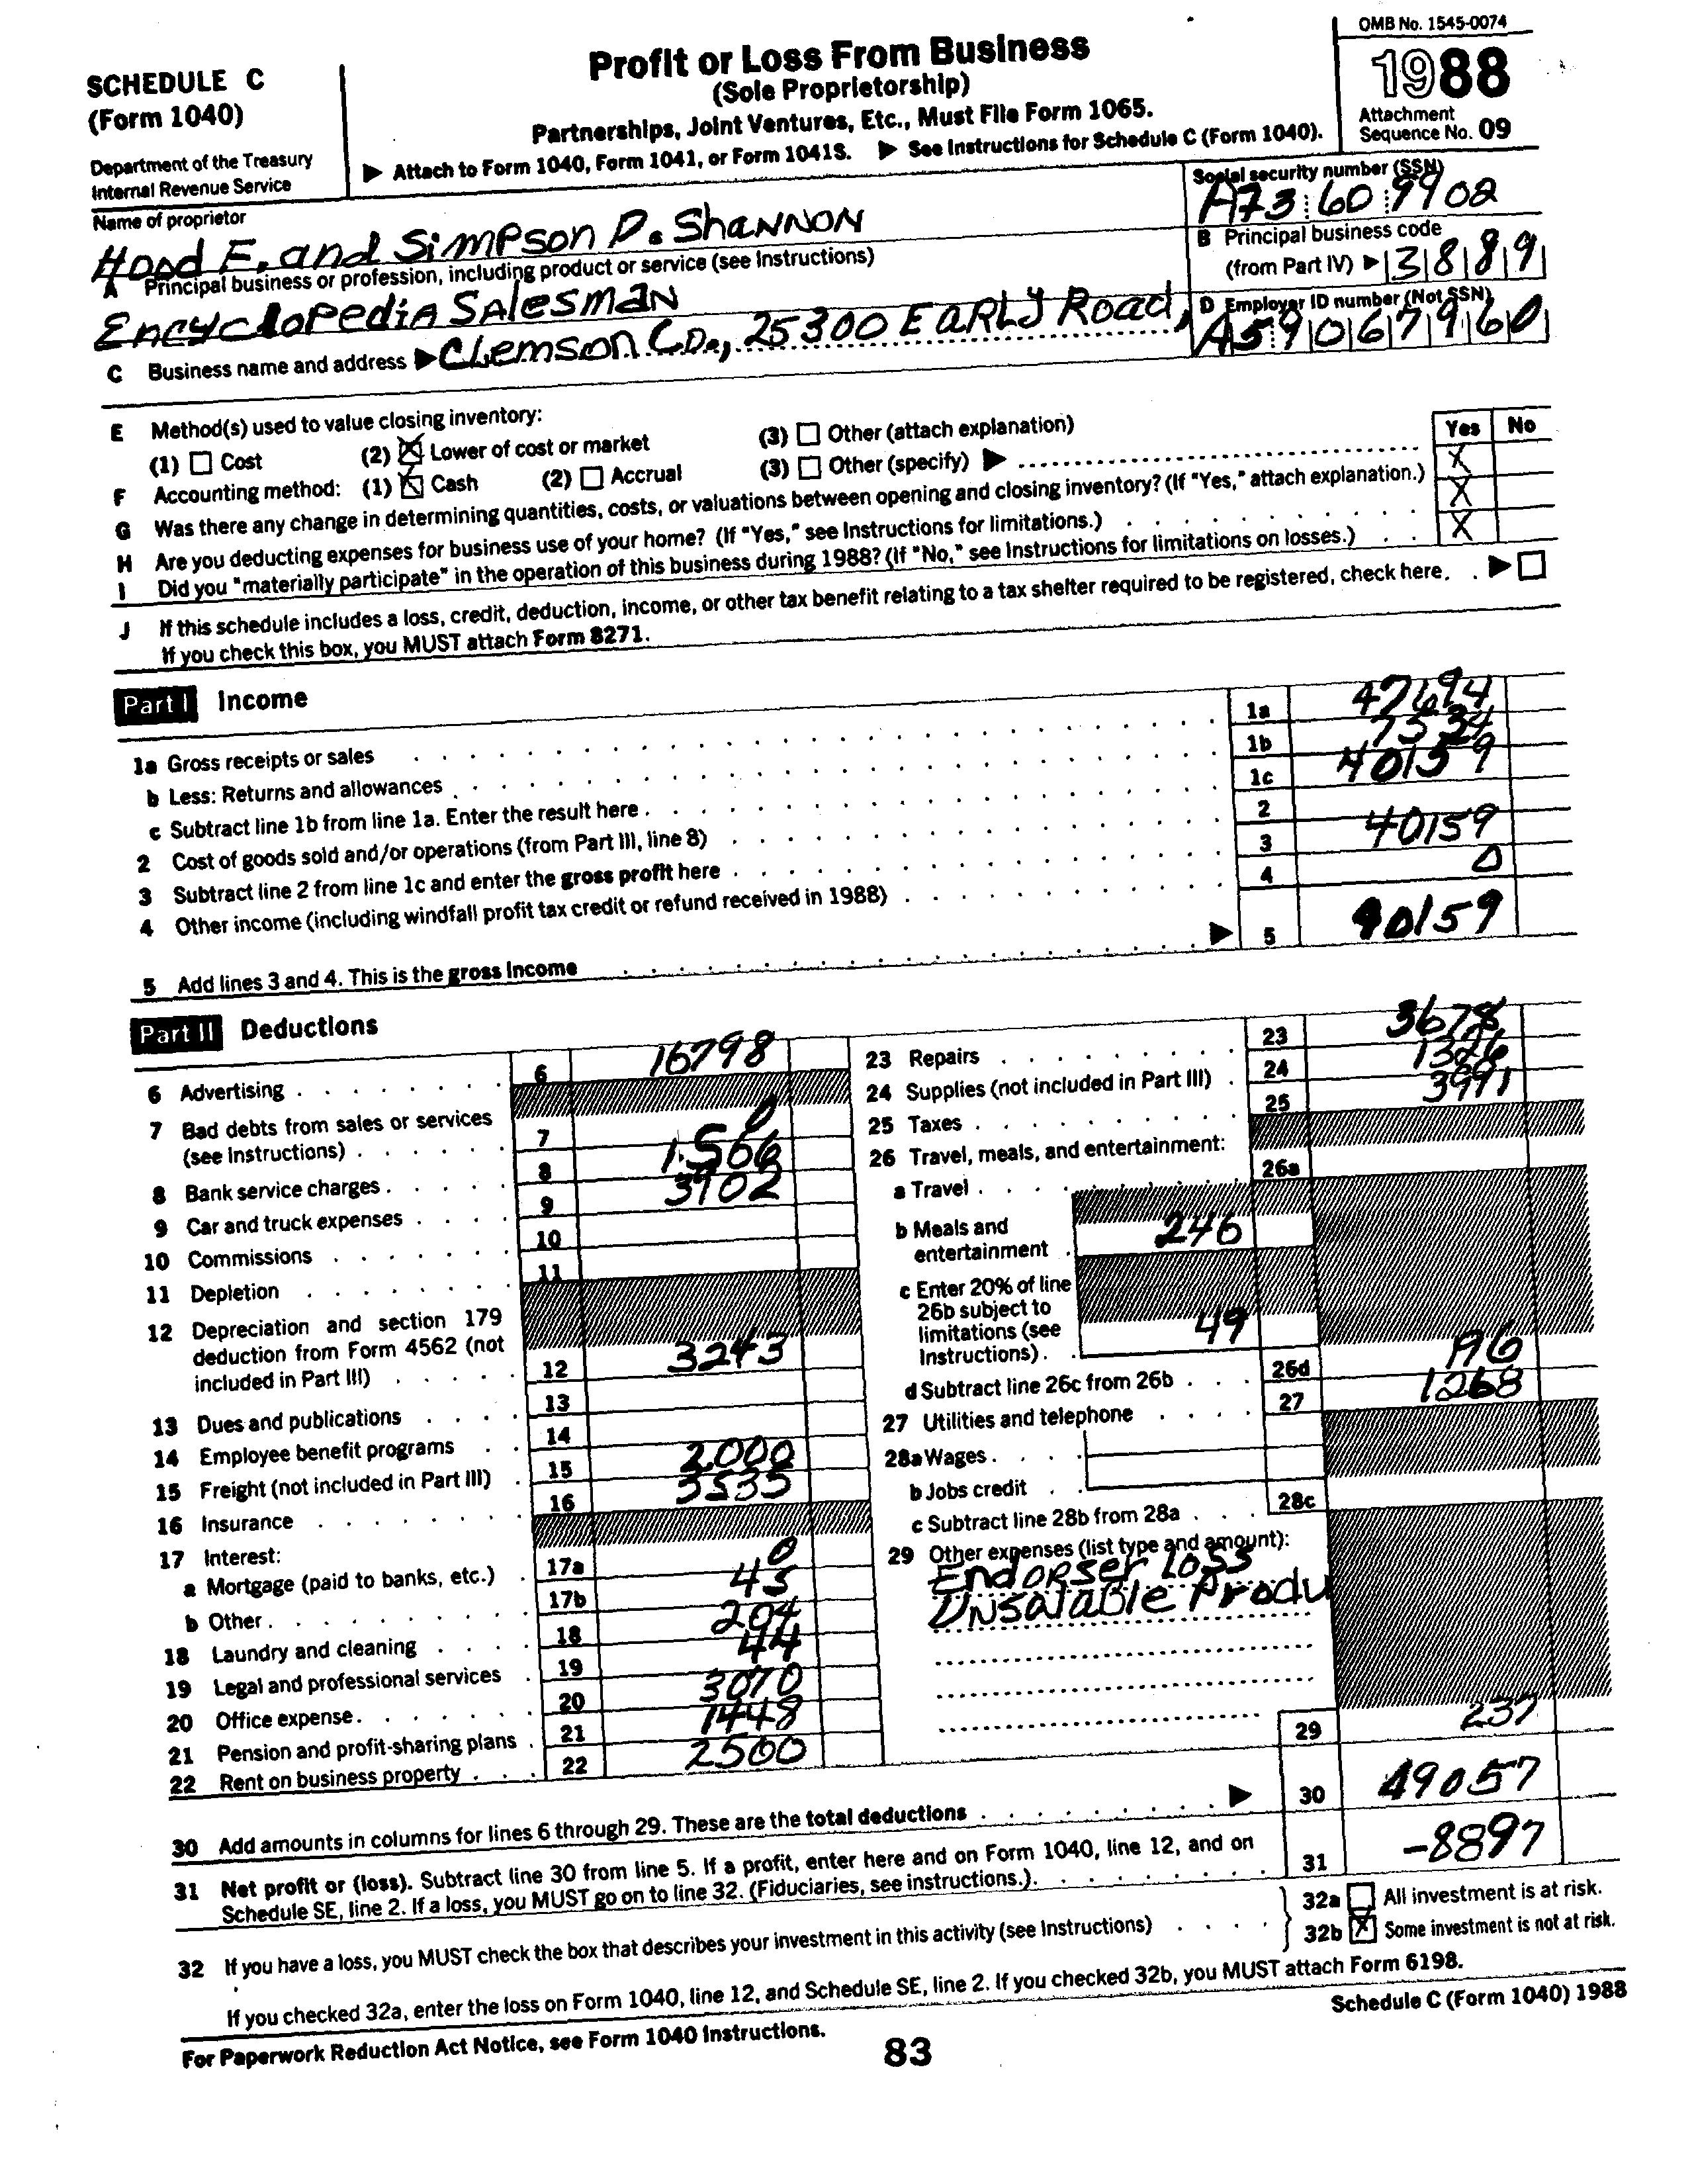 OMB No. 1545-0074
SCHEDULE C
(Form 1040)
Department of the Treasury
Internal Revenue Service
Profit or Loss From Business
(Sole Proprietorship)
Partnerships, Joint Ventures, Etc., Must File Form 1065.
▶ Attach to Form 1040, Form 1041, or Form 1041S. ▶ See Instructions for Schedule C (Form 1040).
1988
Attachment
Sequence No. 09
Name of proprietor
Hood F. and Simpson D. Shannon
Social security number (SSN)
A73 60 9902
A Principal business or profession, including product or service (see Instructions)
Encyclopedia Salesman
B Principal business code
(from Part IV) ▶ 3889
C Business name and address ▶ Clemson Co., 25300 Early Road,
D Employer ID number (Not SSN)
A59067960
E Method(s) used to value closing inventory:
(1) Cost (2) X Lower of cost or market (3) Other (attach explanation)
Yes No
F Accounting method: (1) X Cash (2) Accrual (3) Other (specify) ▶
G Was there any change in determining quantities, costs, or valuations between opening and closing inventory? (If "Yes," attach explanation.) X
H Are you deducting expenses for business use of your home? (If "Yes," see Instructions for limitations.) X
I Did you "materially participate" in the operation of this business during 1988? (If "No," see Instructions for limitations on losses.) X
J If this schedule includes a loss, credit, deduction, income, or other tax benefit relating to a tax shelter required to be registered, check here. ▶
If you check this box, you MUST attach Form 8271.
Part I Income
1a Gross receipts or sales 1a 47694
b Less: Returns and allowances 1b 7534
c Subtract line 1b from line 1a. Enter the result here 1c 40159
2 Cost of goods sold and/or operations (from Part III, line 8) 2
3 Subtract line 2 from line 1c and enter the gross profit here 3 40159
4 Other income (including windfall profit tax credit or refund received in 1988) 4 0
5 Add lines 3 and 4. This is the gross income ▶ 5 40159
Part II Deductions
6 Advertising 6 16798
7 Bad debts from sales or services
(see Instructions) 7 0
8 Bank service charges 8 1566
9 Car and truck expenses 9 3902
10 Commissions 10
11 Depletion 11
12 Depreciation and section 179
deduction from Form 4562 (not
included in Part III) 12 3243
13 Dues and publications 13
14 Employee benefit programs 14
15 Freight (not included in Part III) 15 2000
16 Insurance 16 3535
17 Interest:
a Mortgage (paid to banks, etc.) 17a 0
b Other 17b 45
18 Laundry and cleaning 18 204
19 Legal and professional services 19 44
20 Office expense 20 3070
21 Pension and profit-sharing plans 21 1448
22 Rent on business property 22 2500
23 Repairs 23 3678
24 Supplies (not included in Part III) 24 1326
25 Taxes 25 3991
26 Travel, meals, and entertainment:
a Travel 26a
b Meals and
entertainment 246
c Enter 20% of line
26b subject to
limitations (see
Instructions) 49
d Subtract line 26c from 26b 26d 196
27 Utilities and telephone 27 1268
28a Wages
b Jobs credit
c Subtract line 28b from 28a 28c
29 Other expenses (list type and amount):
Endorser Loss
Unsalable Produ
29 237
30 Add amounts in columns for lines 6 through 29. These are the total deductions ▶ 30 49057
31 Net profit or (loss). Subtract line 30 from line 5. If a profit, enter here and on Form 1040, line 12, and on
Schedule SE, line 2. If a loss, you MUST go on to line 32. (Fiduciaries, see instructions.) 31 -8897
32 If you have a loss, you MUST check the box that describes your investment in this activity (see Instructions)
32a All investment is at risk.
32b X Some investment is not at risk.
If you checked 32a, enter the loss on Form 1040, line 12, and Schedule SE, line 2. If you checked 32b, you MUST attach Form 6198.
For Paperwork Reduction Act Notice, see Form 1040 Instructions.
Schedule C (Form 1040) 1988
83